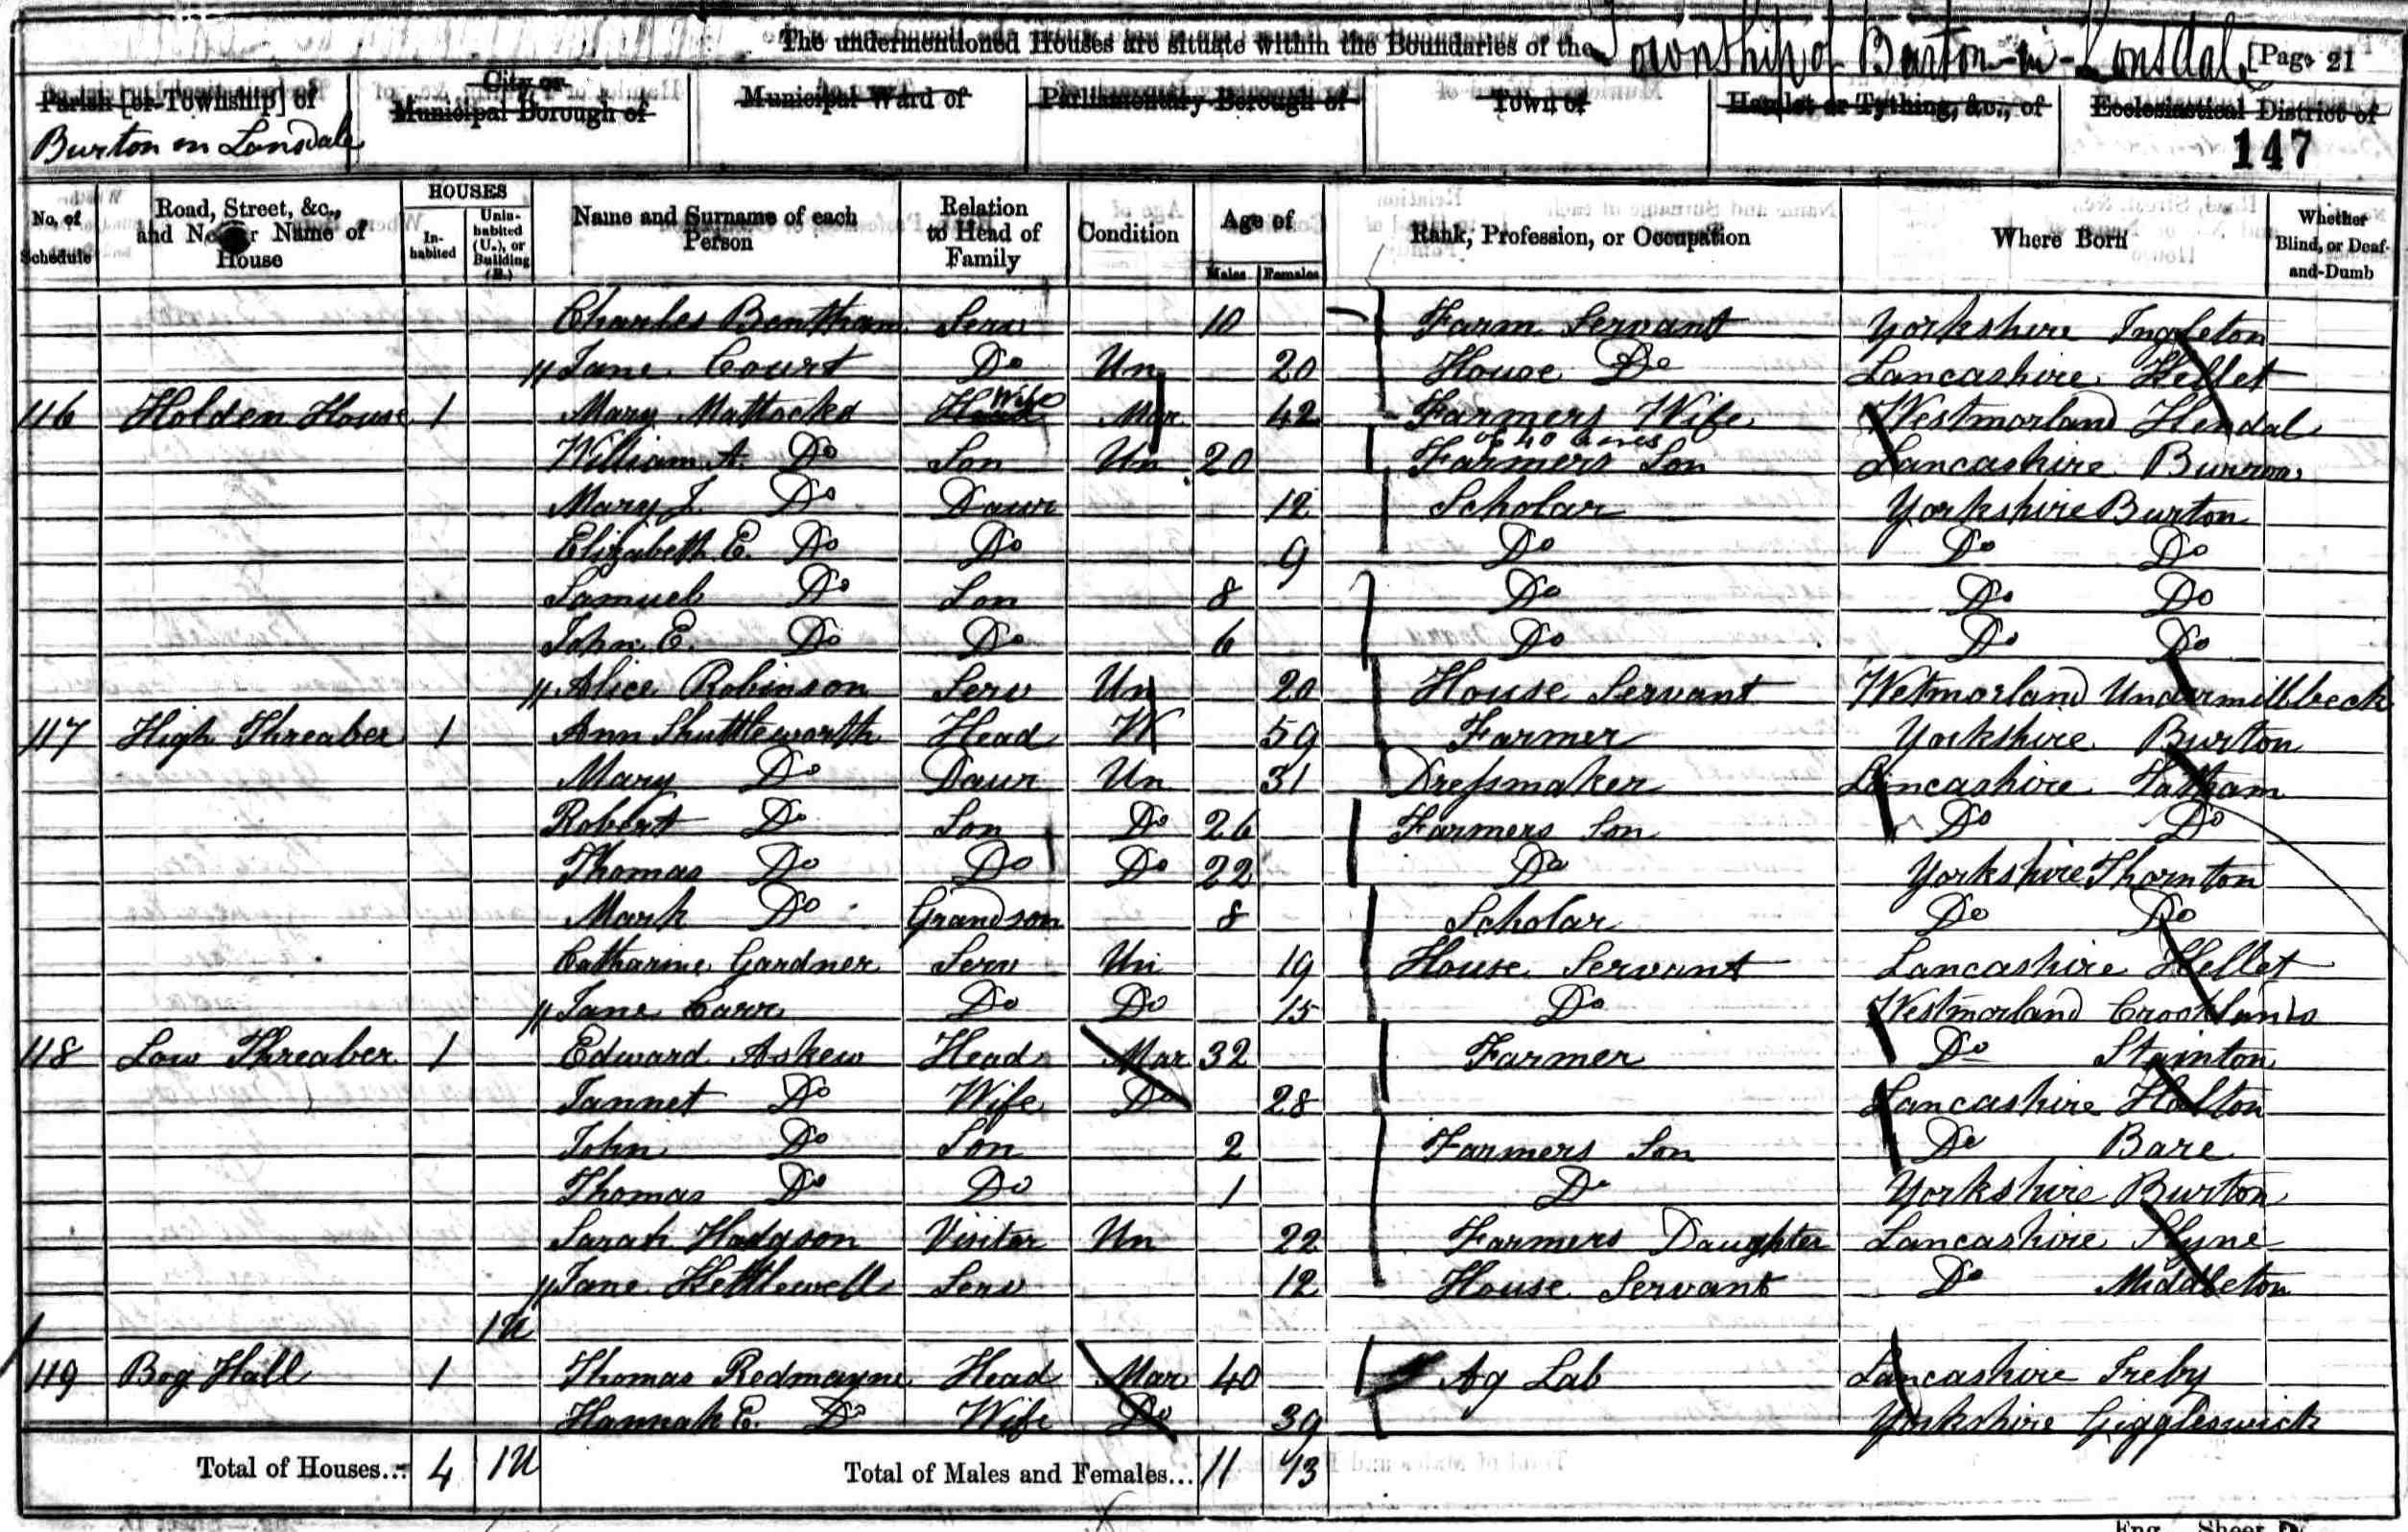 The undermentioned Houses are situate within the Boundaries of the Township of Burton-in-Lonsdale [Page 21
Parish [or Township] of City or Municipal Borough of Municipal Ward of Parliamentary Borough of Town of Hamlet or Tything, &c., of Ecclesiastical District of
Burton in Lonsdale 147
No. of Schedule Road, Street, &c., and No. or Name of House HOUSES In-habited Unin-habited (U.), or Building (B.) Name and Surname of each Person Relation to Head of Family Condition Age of Males Females Rank, Profession, or Occupation Where Born Whether Blind, or Deaf-and-Dumb
Charles Bentham Serv 10 Farm Servant Yorkshire Ingleton
// Jane Court Do Un 20 House Do Lancashire Kellet
116 Holden House 1 Mary Mattocks Wife Mar 42 Farmers Wife of 40 acres Westmorland Kendal
William A. Do Son Un 20 Farmers Son Lancashire Burrow
Mary J. Do Daur 12 Scholar Yorkshire Burton
Elizabeth E. Do Do 9 Do Do Do
Samuel Do Son 8 Do Do Do
John E. Do Do 6 Do Do Do
// Alice Robinson Serv Un 20 House Servant Wetmorland Undermillbeck
117 High Threaber 1 Ann Shuttleworth Head W 59 Farmer Yorkshire Burton
Mary Do Daur Un 31 Dressmaker Lancashire Tatham
Robert Do Son Do 26 Farmers Son Do Do
Thomas Do Do Do 22 Do Yorkshire Thornton
Mark Do Grandson 8 Scholar Do Do
Catharine Gardner Serv Un 19 House Servant Lancashire Kellet
// Jane Carr Do Do 15 Do Westmorland Crooklands
118 Low Threaber 1 Edward Askew Head Mar 32 Farmer Do Stainton
Jannet Do Wife Do 28 Lancashire Halton
John Do Son 2 Farmers Son Do Bare
Thomas Do Do 1 Do Yorkshire Burton
Sarah Hodgson Visitor Un 22 Farmers Daughter Lancashire Slyne
// Jane Kettlewell Serv 12 House Servant Do Middleton
1U
119 Bog Hall 1 Thomas Redmayne Head Mar 40 Ag Lab Lancashire Ireby
Hannah E. Do Wife Do 39 Yorkshire Giggleswick
Total of Houses... 4 1U Total of Males and Females... 11 13
Eng.—Sheet